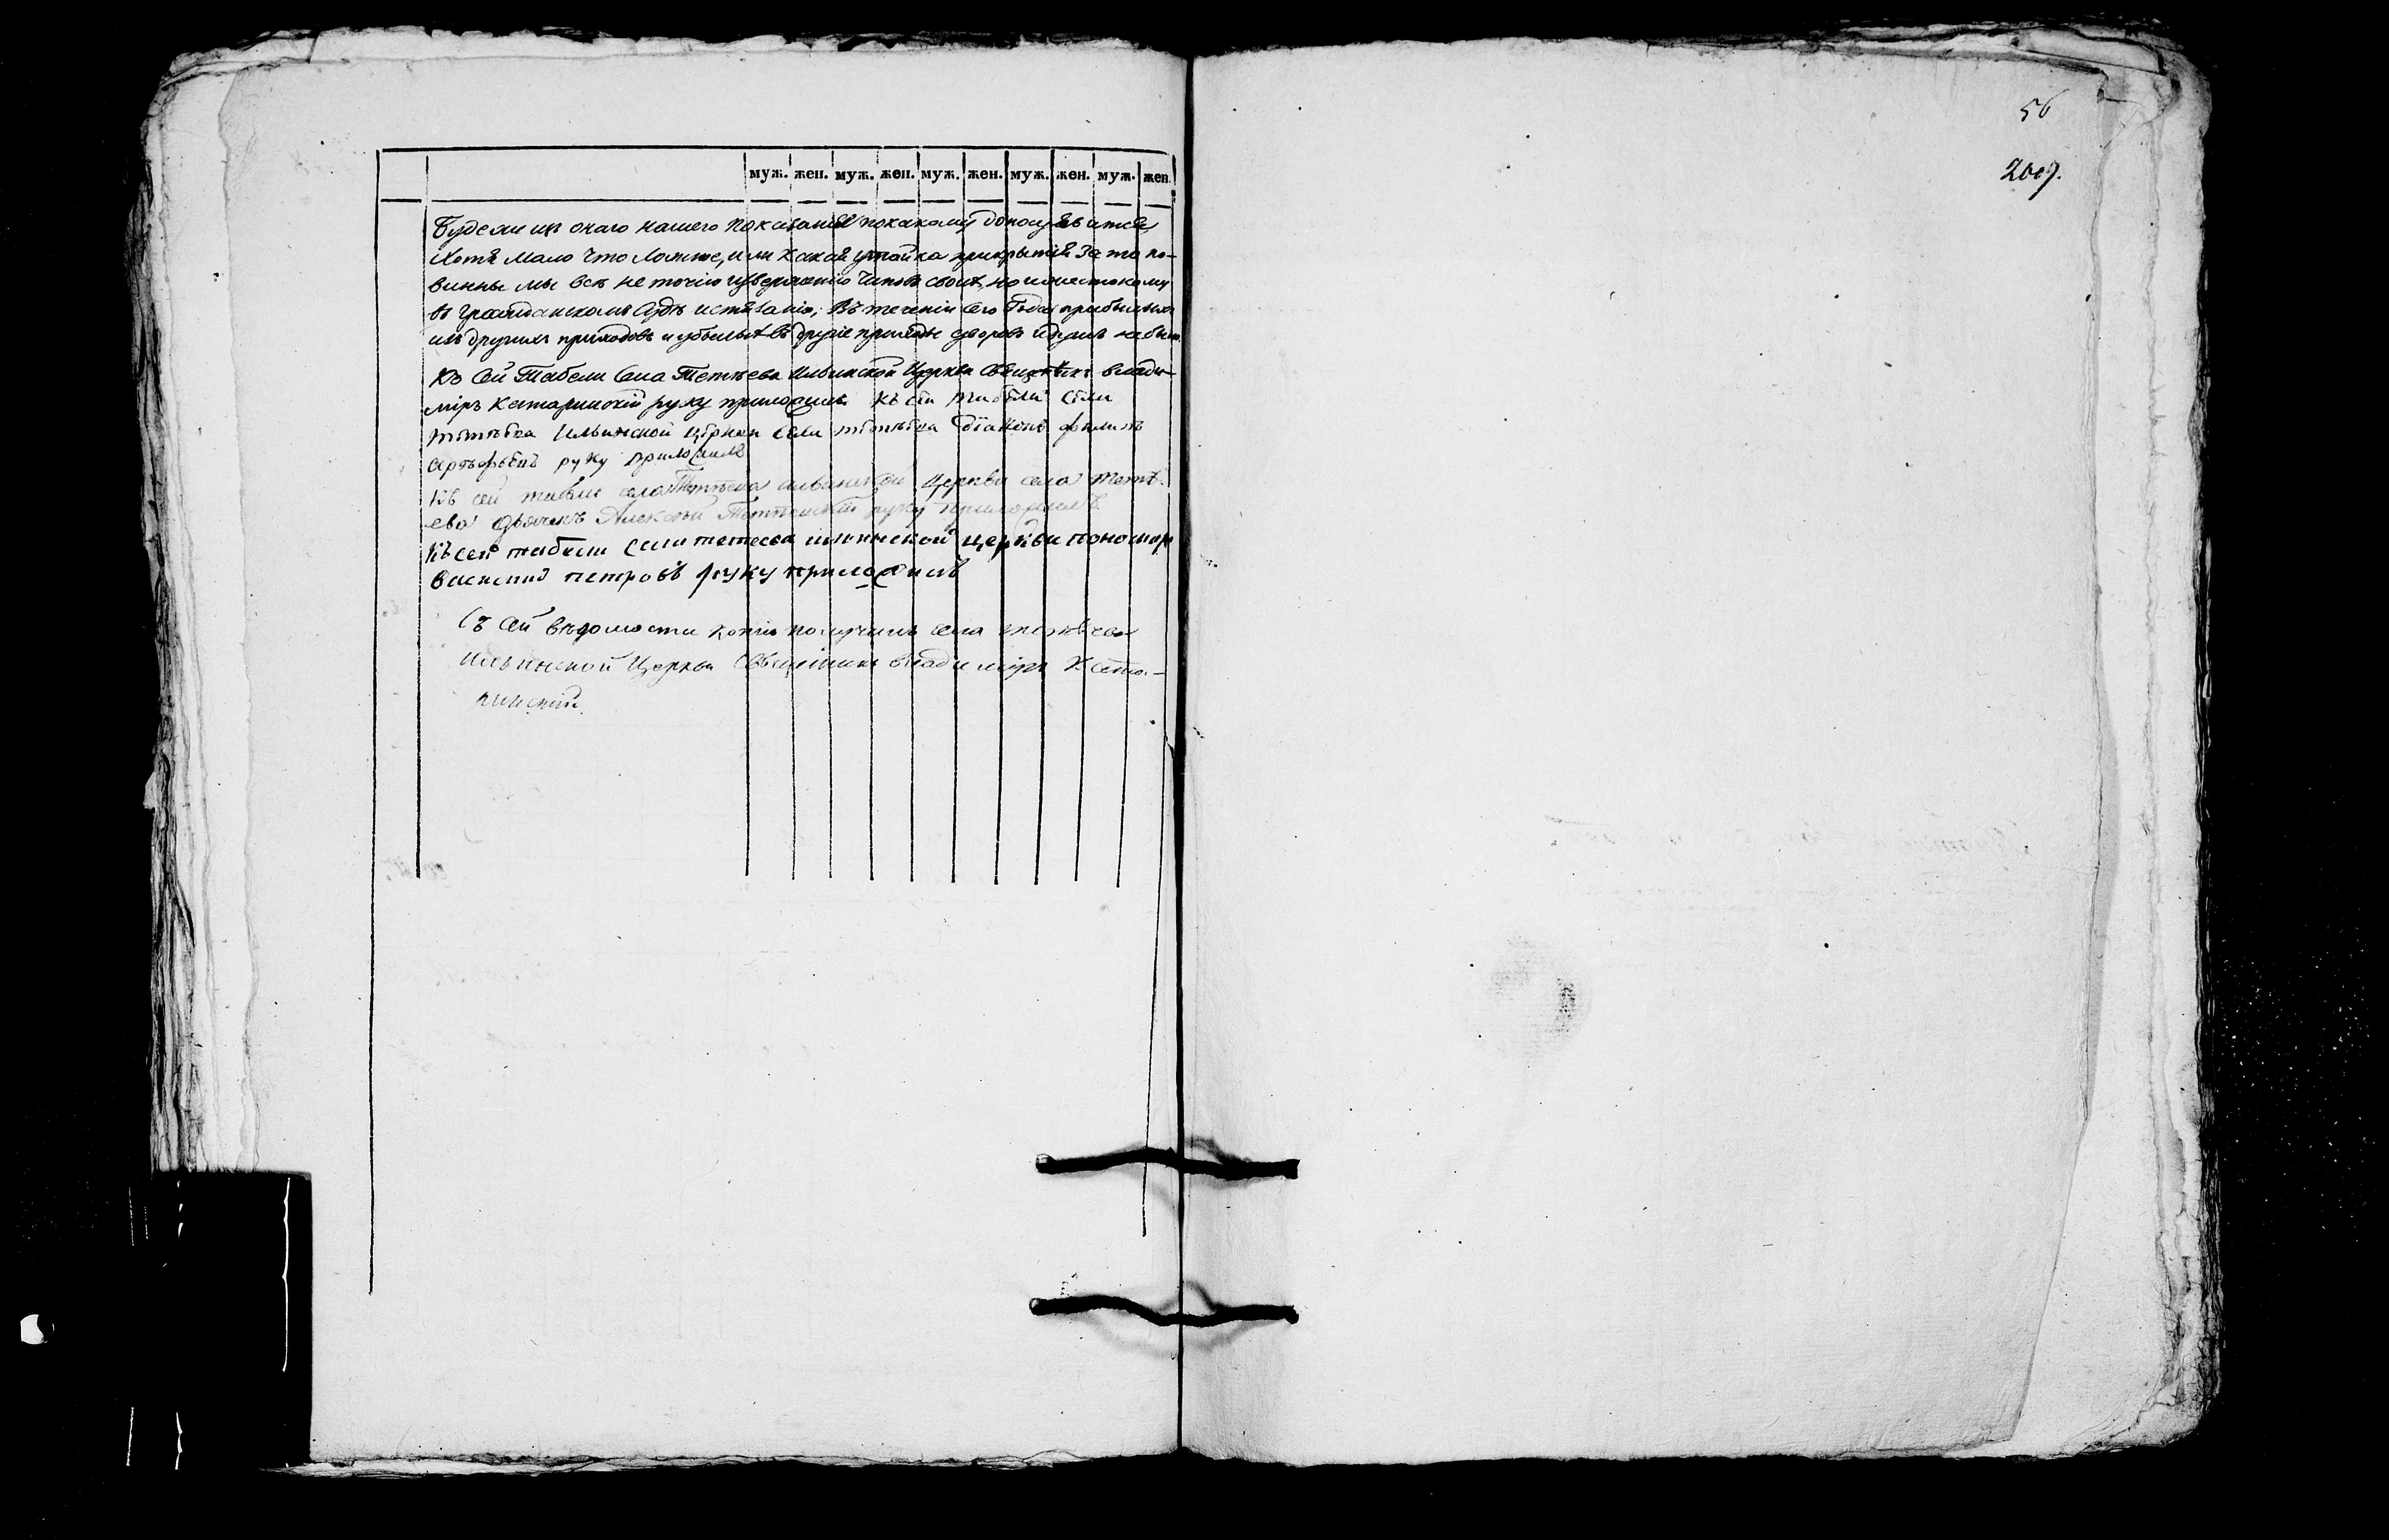 муж. жен. муж. жен. муж. жен. муж. жен. муж. жен.
Буде же изъ онаго нашего показанія по какому доносу явится
Хотя мало что ложное, или какая утайка и прикрытіе за то по-
винны мы все не точію изверженію чиновъ своихъ, но и жестокому
въ гражданскомъ судѣ истязанію; Въ теченіи сего года прибылыхъ
изъ другихъ приходовъ и убылыхъ въ другіе приходы дворовъ и душъ не было.
Къ сей Табели села Тетѣева Ильинской Церкви Священникъ влади-
міръ руку приложилъ къ сей табели села
тетѣева Ильинской церкви села тетѣева діаконъ филипъ
руку приложилъ
Къ сей табели села Тетѣева ильинской Церкви села Тетѣ-
ева дьячекъ Алексѣй руку приложилъ
Къ сей табели села тетеева илинской церкви пономар
василий петровъ руку приложилъ
Съ сей вѣдомости копію получилъ села тетѣева
Ильинской Церкви Священникъ владиміръ
56